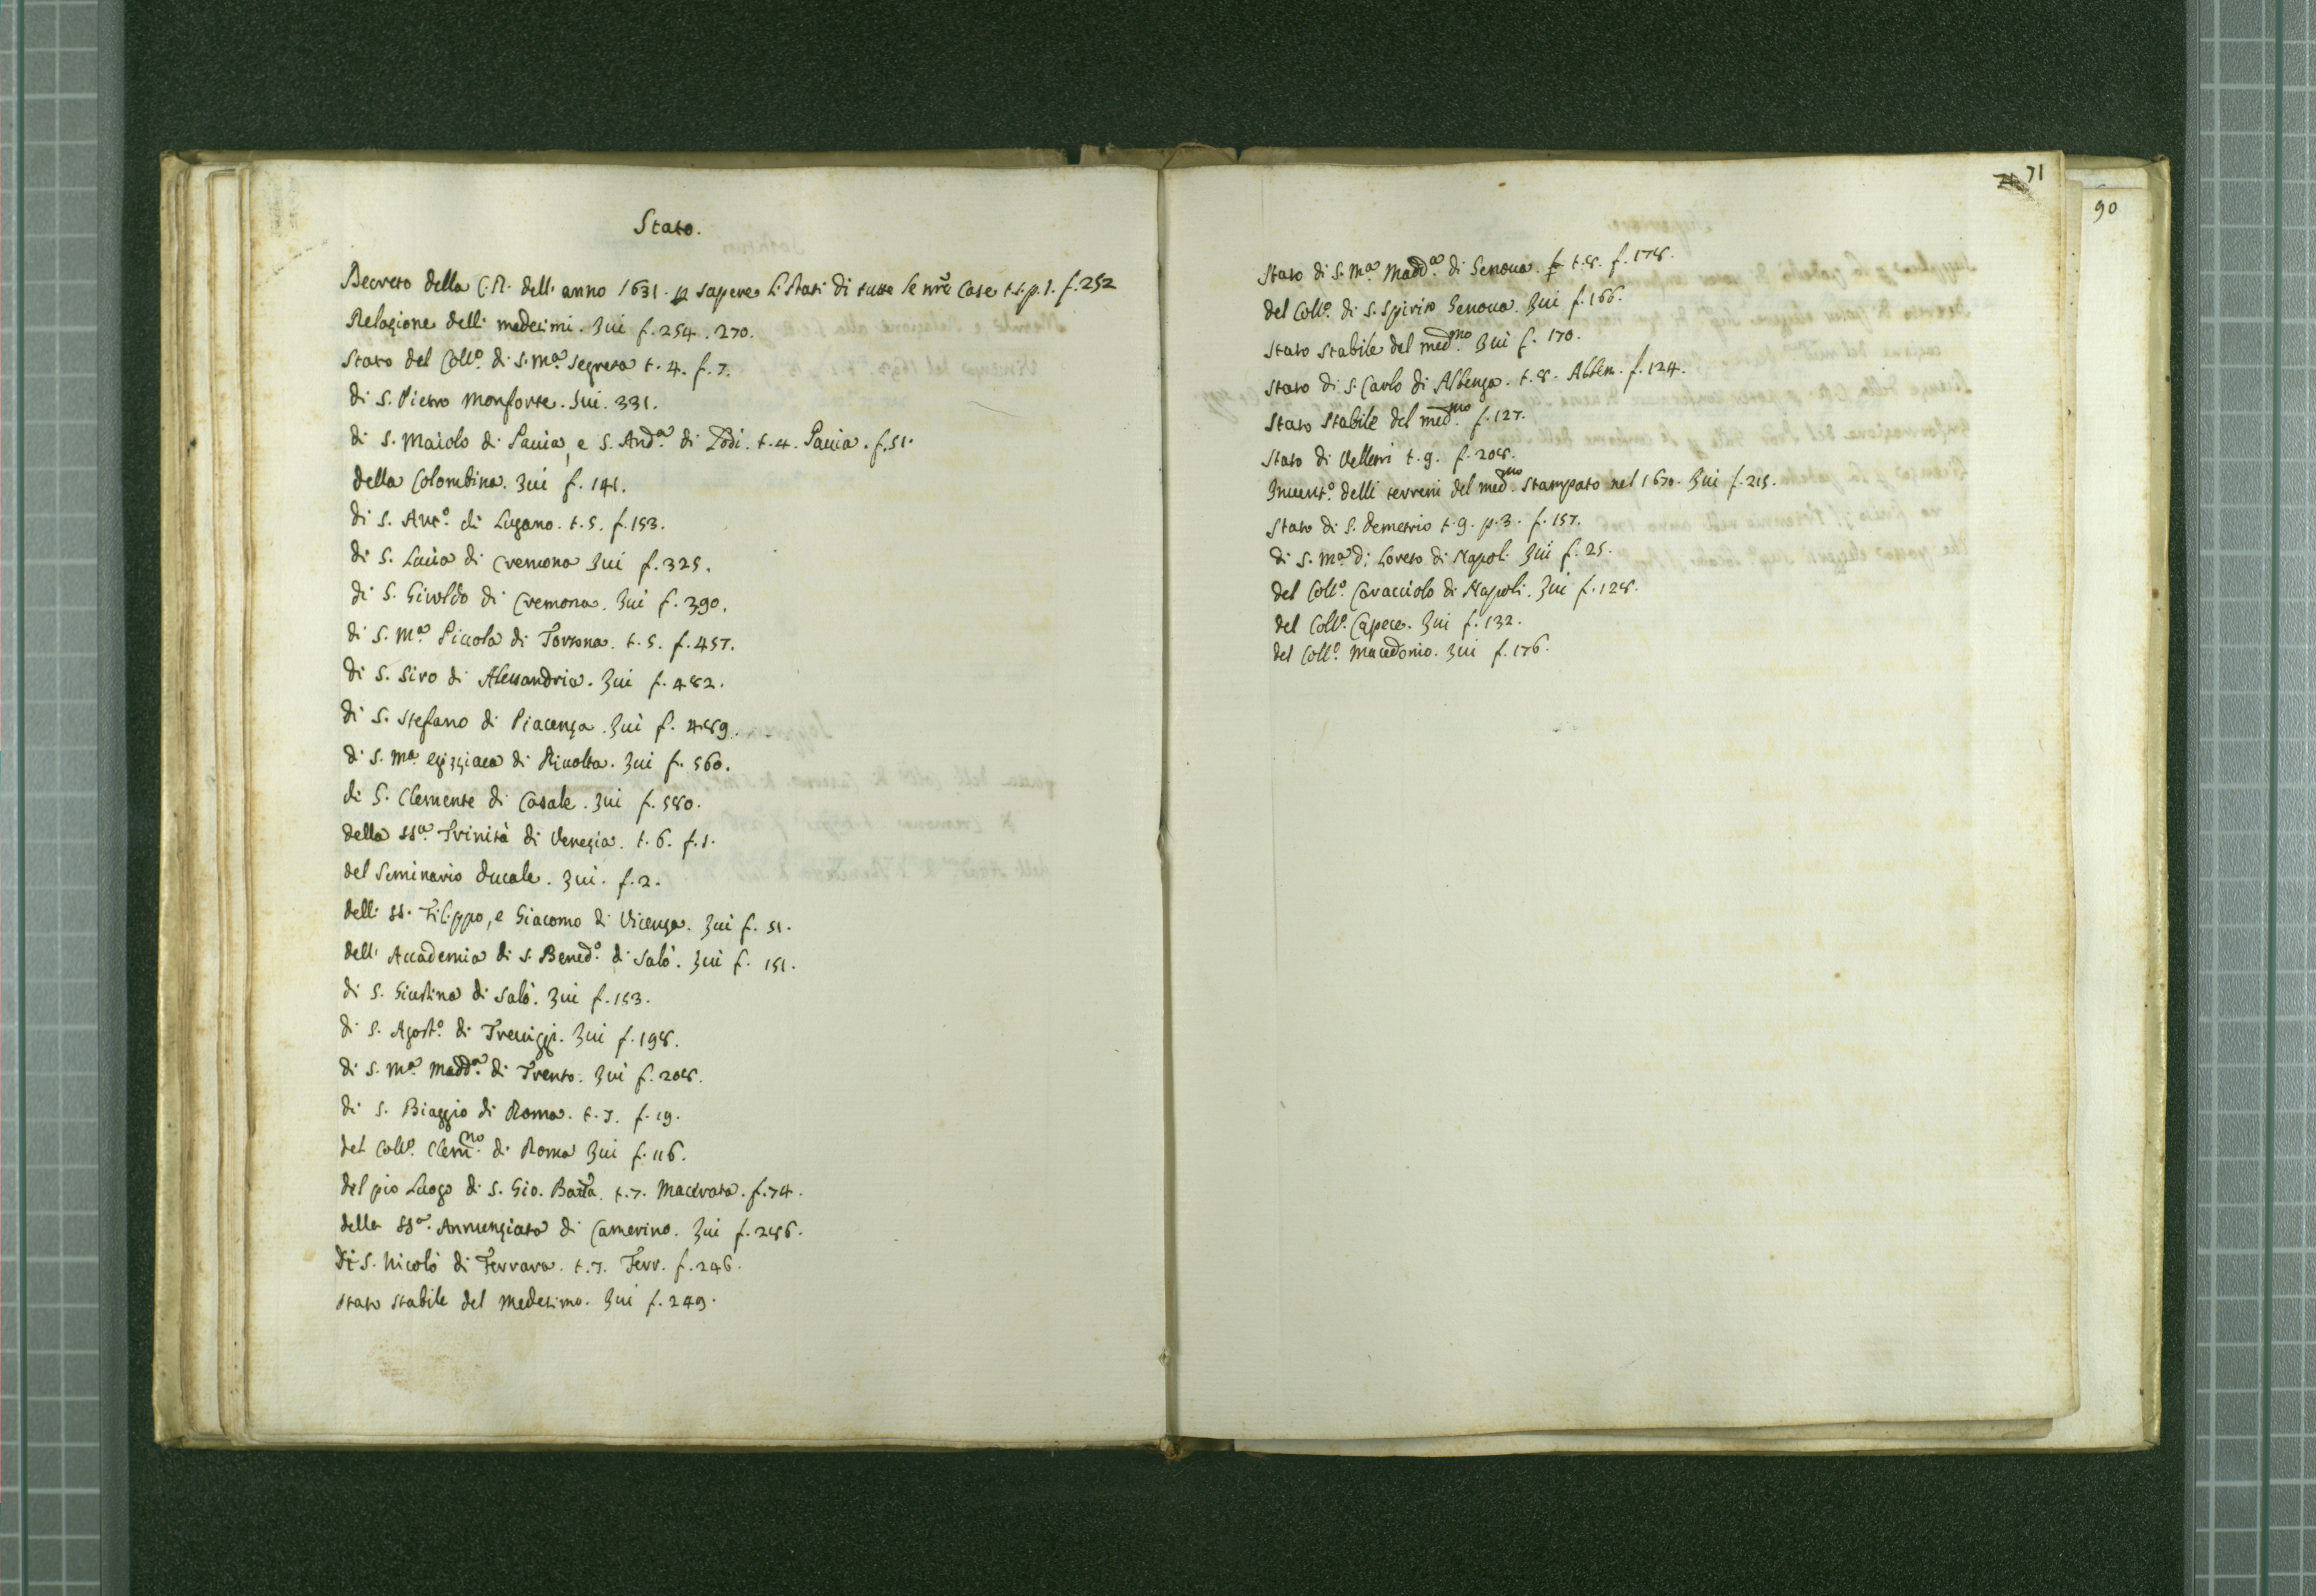 Stato.
Decreto della C.R. dell'anno 1631. p sapere li stati di tutte le nre Case t.1.p.1. f.252
Relazione delli medesimi. Iui f.254.270.
Stato del Collº. di S. Mª. Segreta t.4. f.7.
di S. Pietro Monforte. Iui. 331.
di S. Maiolo di Pauia, e S. Andª. di Lodi. t.4. Pauia. f.51.
della Colombina. Iui f.141.
di S. Antº. di Lugano. t.5. f.153.
di S. Lucia di Cremona Iui f.325.
di S. Giroldo di Cremona. Iui f.390.
di S. Mª. Piccola di Tortona. t.5. f.457.
di S. Siro di Alessandria. Iui f.482.
di S. Stefano di Piacenza. Iui f.489.
di S. Mª egizziaca di Riuolta. Iui f.560.
di S. Clemente di Casale. Iui f.580.
della SSª. Trinità di Venezia. t.6. f.1.
del Seminario ducale. Iui. f.2.
delli SS. Filippo, e Giacomo di Vicenza. Iui f.51.
dell'Accademia di S. Benedº. di Salò. Iui f.151.
di S. Giustina di Salò. Iui f.153.
di S. Agostº. di Treuiggi. Iui f.198.
di S. Mª. Maddª. di Trento. Iui f.208.
di S. Biaggio di Roma. t.7. f.19.
del Collº. Clemno. di Roma Iui f.116.
del pio Luogo di S. Gio. Batta. t.7. Macerata. f.74.
della SSª. Annunziata di Camerino. Iui f.286.
di S. Nicolò di Ferrara. t.7. Ferr. f.246.
stato stabile del medesimo. Iui f.249.
71
90
Stato di S. Mª Maddª. di Genoua. t.8. f.178.
del Collº. di S. Spirito Genoua. Iui f.166.
stato stabile del medmo. Iui f.170.
stato di S. Carlo di Albenga. t.8. Alben. f.124.
stato stabile del medmo. f.127.
stato di Velletri t.9. f.208.
Inuentº. delli terreni del medmo. stampato nel 1670. Iui f.215.
stato di S. demetrio t.9. p.3. f.157.
di S. Mª di Loreto di Napoli Iui f.25.
del Collº. Caracciolo di Napoli. Iui f.128.
del Collº. Capece. Iui f.132.
del Collº. Macedonio. Iui f.176.